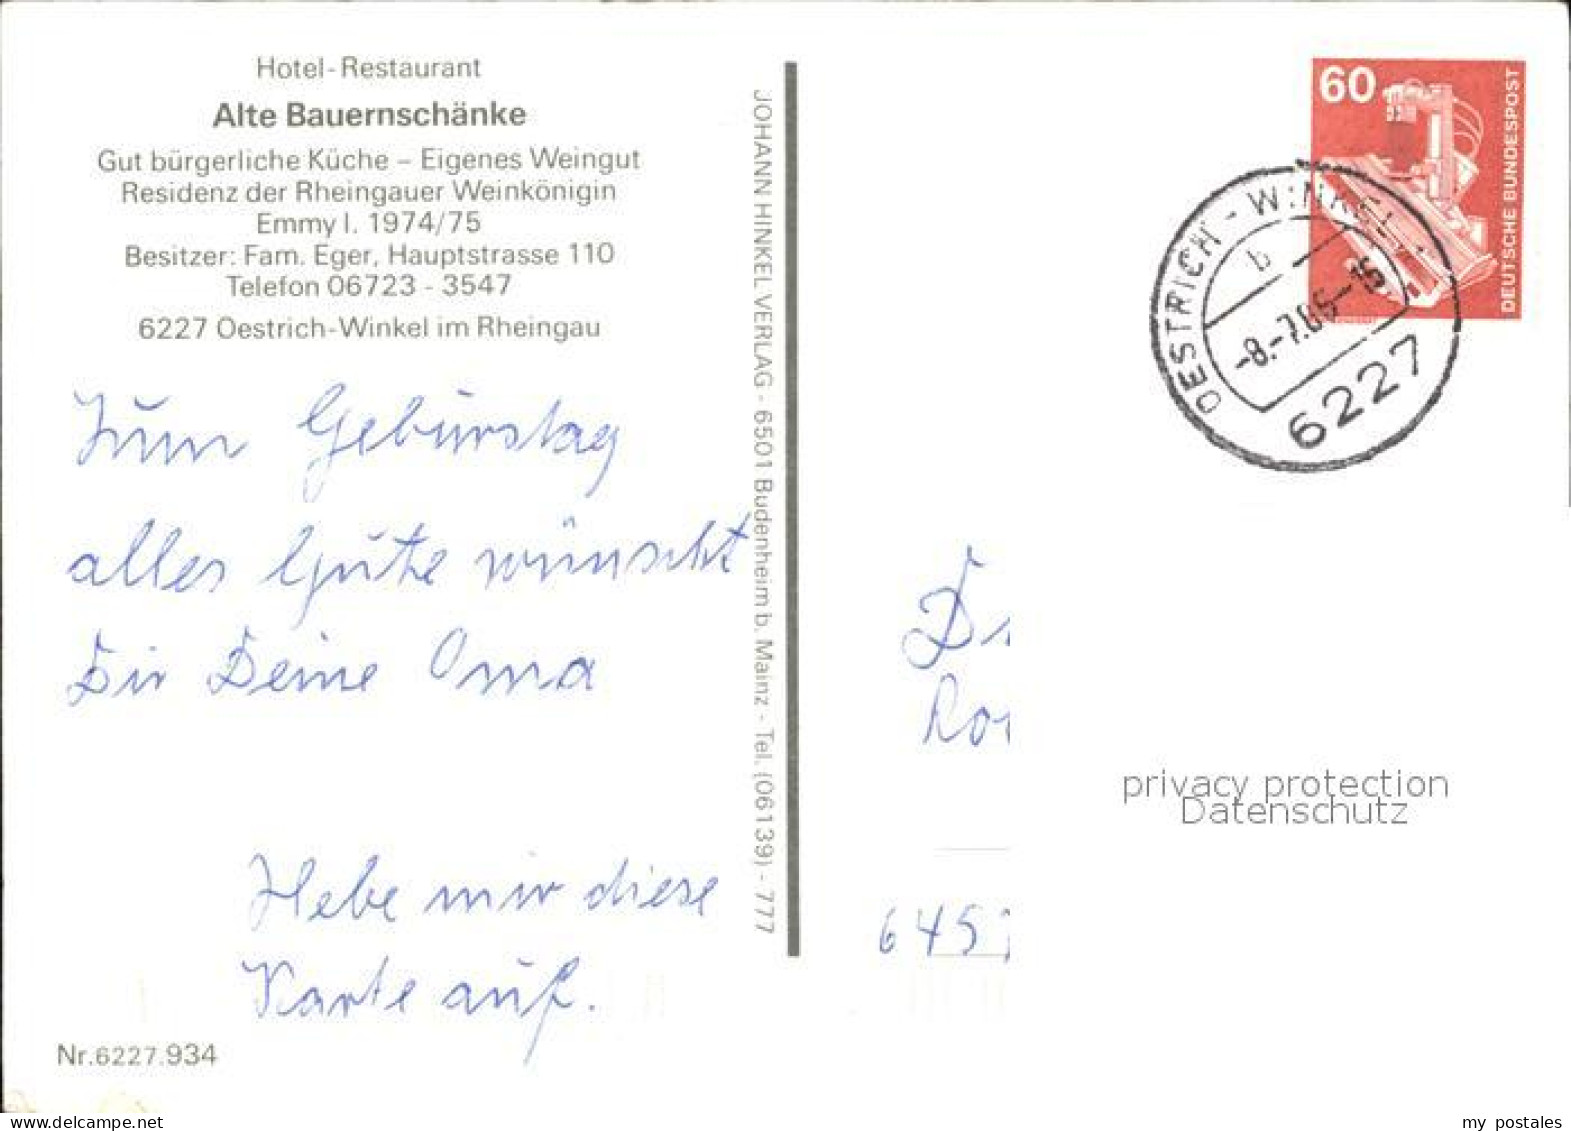 Hotel-Restaurant
Alte Bauernschänke
Gut bürgerliche Küche – Eigenes Weingut
Residenz der Rheingauer Weinkönigin
Emmy I. 1974/75
Besitzer: Fam. Eger, Hauptstrasse 110
Telefon 06723 - 3547
6227 Oestrich-Winkel im Rheingau
Zum Geburtstag
alles Gute wünscht
Dir Deine Oma
Hebe mir diese
Karte auf.
Nr.6227.934
JOHANN HINKEL VERLAG - 6501 Budenheim b. Mainz - Tel. (06139) - 777
60
DEUTSCHE BUNDESPOST
OESTRICH-WINKEL
b
6227
privacy protection
Datenschutz
6457
www.delcampe.net
my_postales